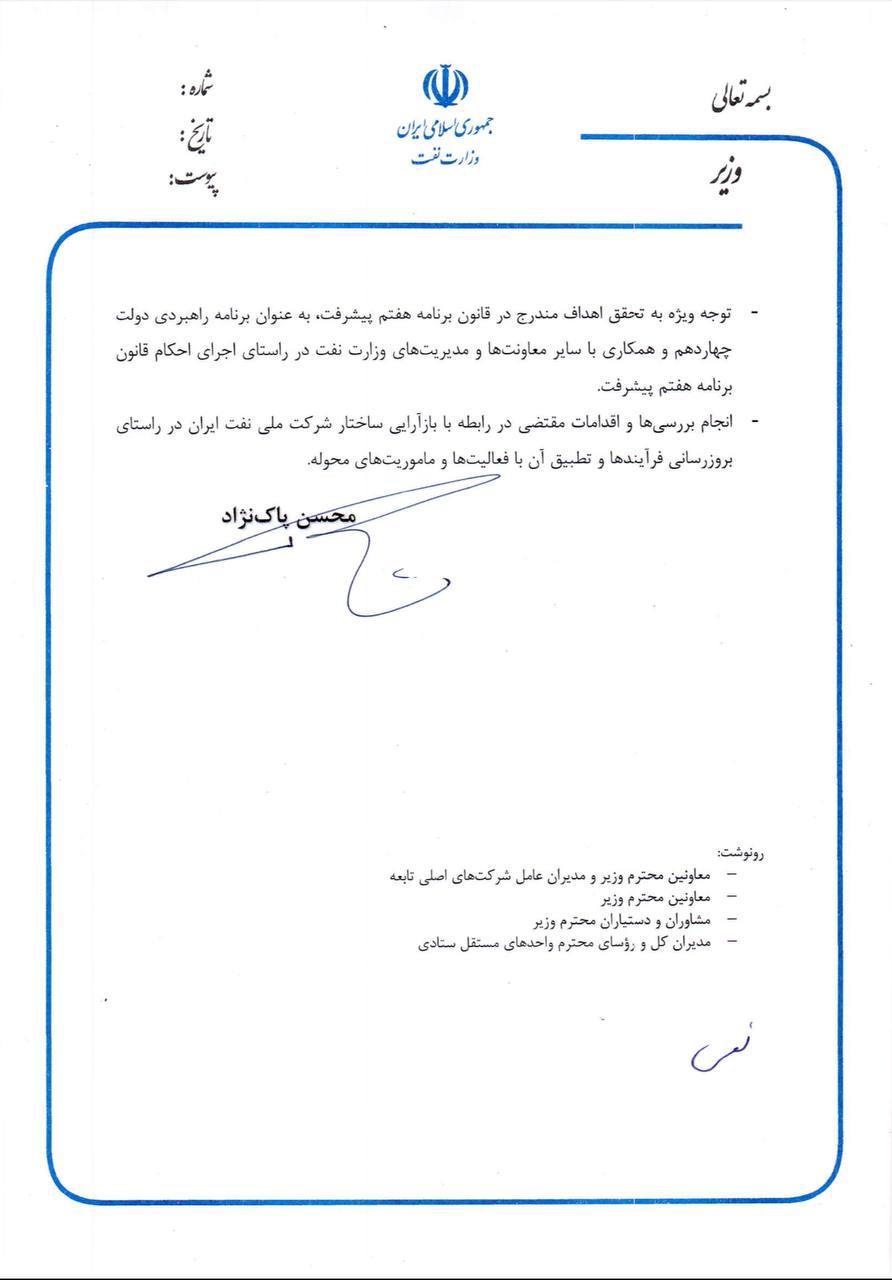 بسمه تعالی
جمهوری اسلامی ایران
وزارت نفت
وزیر
شماره :
تاریخ :
پیوست:
- توجه ویژه به تحقق اهداف مندرج در قانون برنامه هفتم پیشرفت، به عنوان برنامه راهبردی دولت
چهاردهم و همکاری با سایر معاونت‌ها و مدیریت‌های وزارت نفت در راستای اجرای احکام قانون
برنامه هفتم پیشرفت.
- انجام بررسی‌ها و اقدامات مقتضی در رابطه با بازآرایی ساختار شرکت ملی نفت ایران در راستای
بروزرسانی فرآیندها و تطبیق آن با فعالیت‌ها و ماموریت‌های محوله.
محسن پاک‌نژاد
رونوشت:
– معاونین محترم وزیر و مدیران عامل شرکت‌های اصلی تابعه
– معاونین محترم وزیر
– مشاوران و دستیاران محترم وزیر
– مدیران کل و رؤسای محترم واحدهای مستقل ستادی